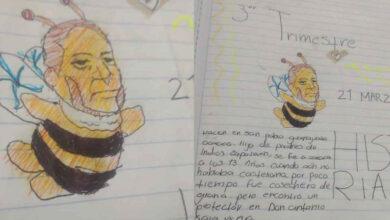 21
3er
Trimestre
21 MARZ
HIS
RIA
nacen en san pablo
oaxaca. Hijo de padres de
Indios se fue a oaxaca
a los 13 Años cuando aun no
hablaba castellano por poco
tiempo fue cosechero de
grana pero encontro un
protector en Don antonio